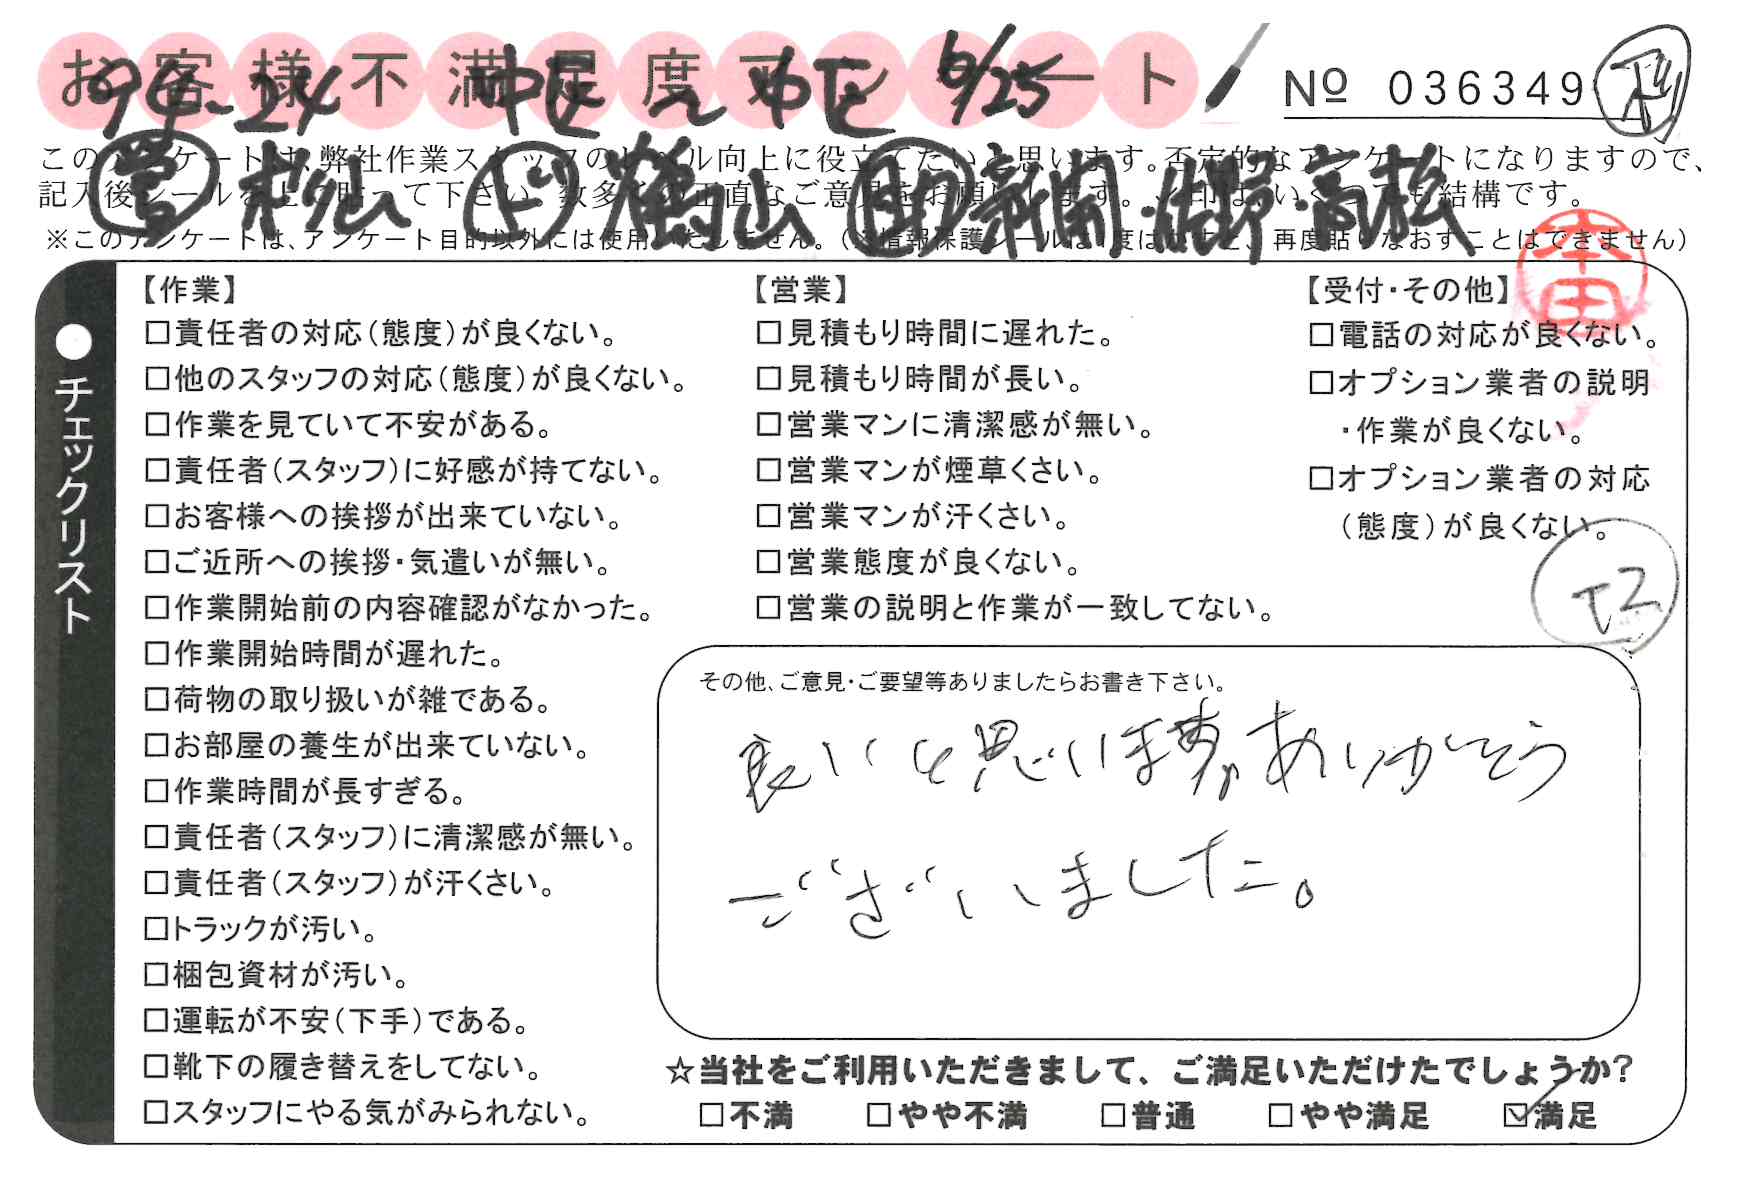 お客様不満足度アンケート
№ 036349
94-24 中区〜中区 6/25
営 松山 ド 鶴山 助 新開・佐野・高松
このアンケートは、弊社作業スタッフのレベル向上に役立てたいと思います。否定的なアンケートになりますので、
記入後シールを上に貼って下さい。数多くの正直なご意見をお願いします。✓印は、いくつでも結構です。
※このアンケートは、アンケート目的以外には使用いたしません。(※情報保護シールは1度はがすと、再度貼りなおすことはできません)
本田
●チェックリスト
【作業】
□責任者の対応(態度)が良くない。
□他のスタッフの対応(態度)が良くない。
□作業を見ていて不安がある。
□責任者(スタッフ)に好感が持てない。
□お客様への挨拶が出来ていない。
□ご近所への挨拶・気遣いが無い。
□作業開始前の内容確認がなかった。
□作業開始時間が遅れた。
□荷物の取り扱いが雑である。
□お部屋の養生が出来ていない。
□作業時間が長すぎる。
□責任者(スタッフ)に清潔感が無い。
□責任者(スタッフ)が汗くさい。
□トラックが汚い。
□梱包資材が汚い。
□運転が不安(下手)である。
□靴下の履き替えをしてない。
□スタッフにやる気がみられない。
【営業】
□見積もり時間に遅れた。
□見積もり時間が長い。
□営業マンに清潔感が無い。
□営業マンが煙草くさい。
□営業マンが汗くさい。
□営業態度が良くない。
□営業の説明と作業が一致してない。
【受付・その他】
□電話の対応が良くない。
□オプション業者の説明
・作業が良くない。
□オプション業者の対応
(態度)が良くない。
その他、ご意見・ご要望等ありましたらお書き下さい。
良いと思います。ありがとう
ございました。
☆当社をご利用いただきまして、ご満足いただけたでしょうか?
□不満 □やや不満 □普通 □やや満足 ☑満足